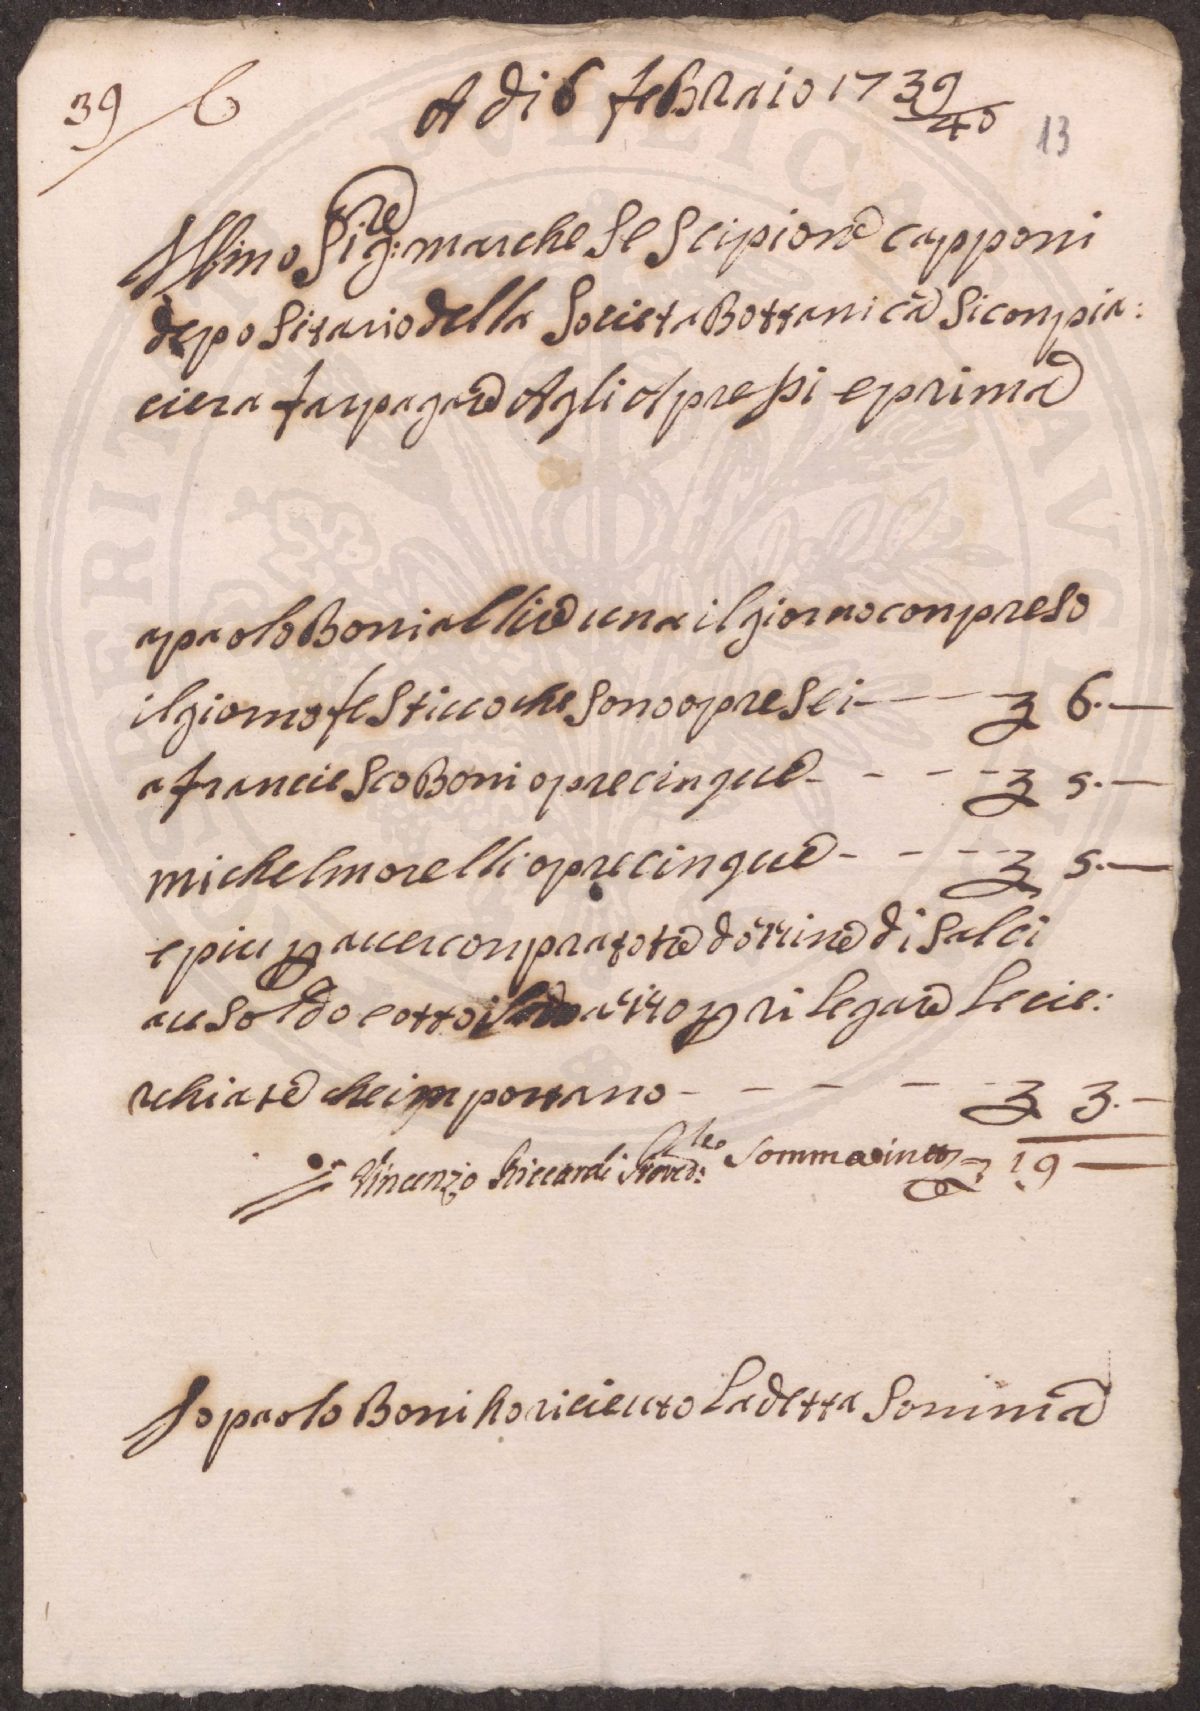 39 / 6
A di 6 feBraio 1739/40
13
Illmo Sigre: marchese Scipione capponi
depositario della Societa Bottanica Si conpia:
ciera far pagare Agli Apressi e prima
a paolo Boni a llire una il giorno conpreso
il giorno festiuo che sono opre sei — — 6. —
a franciesco Boni opre cinque - - - - 5. —
michel morelli opre cinque - - - - 5. —
e piu p auer conprato tre di salci
a un soldo e otto p rilegare le cie:
rchiate che inportano - - - - - 3. —
Vincenzo Riccardi Proved:re Somma in tt 19 —
Io paolo Boni ho riceuto la detta Somma